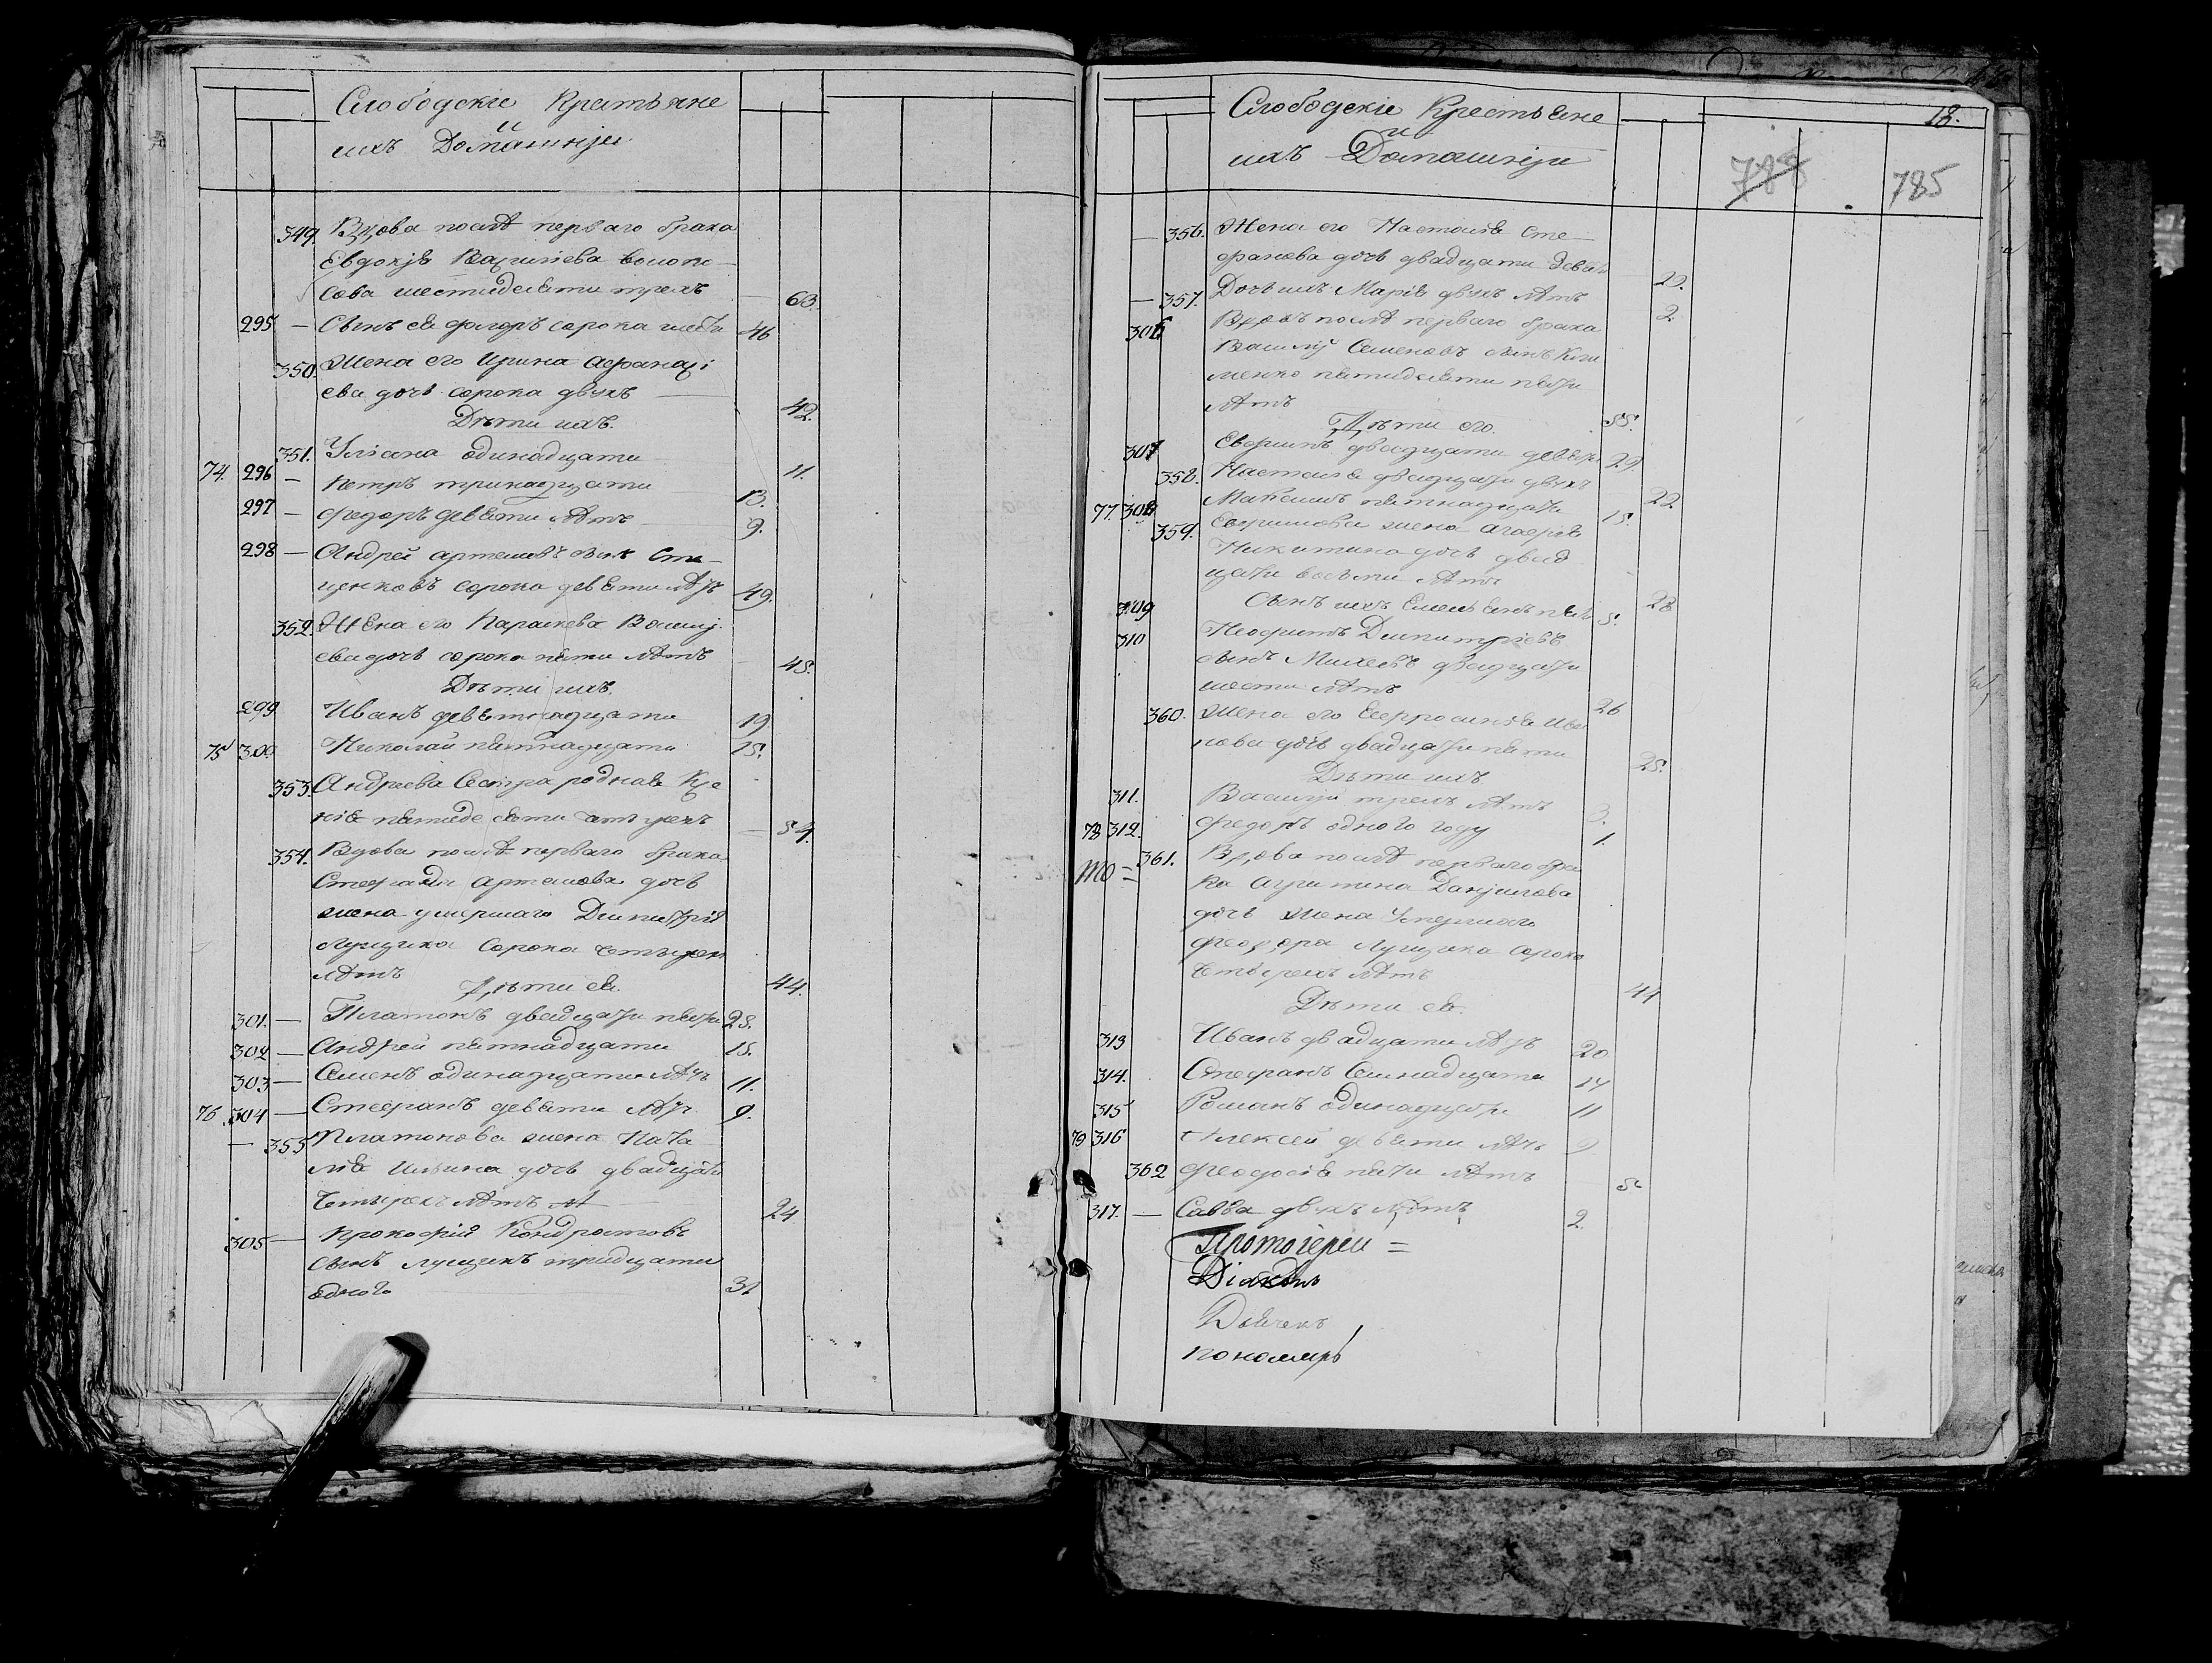 Слободскіе Крестьяне
и
ихъ Домашніи
349. Вдова послѣ перваго брака
Евдокія Василіева
сова шестидесяти трехъ — 63.
295 — Сынъ ея Фиодръ сорока шести 46
350. Жена его Ирина Афанасі
ева дочь сорока двухъ — 42.
Дѣти ихъ.
351. Уліана одинадцати 11.
74. 296 — Петръ тринадцати 13.
297 — Федоръ девяти лѣтъ 9.
298 — Андрей Артемовъ сынъ Сте-
ценковъ сорока девяти лѣтъ 49.
352. Жена его Параскева Василі
ева дочь сорока пяти лѣтъ — 45.
Дѣти ихъ.
299 Иванъ девятнадцати 19
75 300. Николай пятнадцати 15.
353. Андреева Сестра родная Ксе
нія пятидесяти четырехъ — 54.
354. Вдова послѣ перваго брака
Стефанида Артемова дочь
жена умершаго Димитрія
Лущика сорока четырехъ
лѣтъ 44.
Дѣти ея.
301. — Платонъ двадцати пяти 25.
302 — Андрей пятнадцати 15.
303 — Семенъ одинадцати лѣтъ 11.
76 304 — Стефанъ девяти лѣтъ 9.
— 355 Платонова жена Ната
лія Ильина дочь двадцати
четырехъ лѣтъ 24
305 — Прокофій Кондратовъ
сынъ Лущикъ тридцати
одного 31
18.
Слободскіе Крестьяне
и
ихъ Домашніи
788 785
— 356. Жена его Настасія Сте-
фанова дочь двадцати девяти 29.
— 357. Дочь ихъ Марія двухъ лѣтъ 2.
306 Вдовъ послѣ перваго брака
Василій Семеновъ сынъ Кли
менко пятидесяти пяти
лѣтъ 55.
Дѣти его.
307 Евфимъ двадцати девяти 29
358. Настасія двадцати двухъ 22.
77. 308 Максимъ пятнадцати 15.
359. Евфимова жена Агафія
Никитина дочь двад
цати восьми лѣтъ 28
309 Сынъ ихъ Емельянъ пяти 5.
310 Неофитъ Димитріевъ
сынъ Михеевъ двадцати
шести лѣтъ 26
360. Жена его Евфросинія Ива
нова дочь двадцати пяти 25.
Дѣти ихъ
311. Василій трехъ лѣтъ 3.
78 312. Федоръ одного году 1.
361. Вдова послѣ перваго бра
ка Агрипина Даніилова
дочь жена Умершаго
Феодора Лущика сорока
четырехъ лѣтъ 44
Дѣти ея.
313 Иванъ двадцати лѣтъ 20
314. Стефанъ Семнадцати 17
315 Романъ одинадцати 11
79 316 Алексей девяти лѣтъ 9
362 Феодосія пяти лѣтъ 5
317. — Савва двухъ лѣтъ 2.
Протоіереи =
Діаконъ
Дьячекъ
пономарь